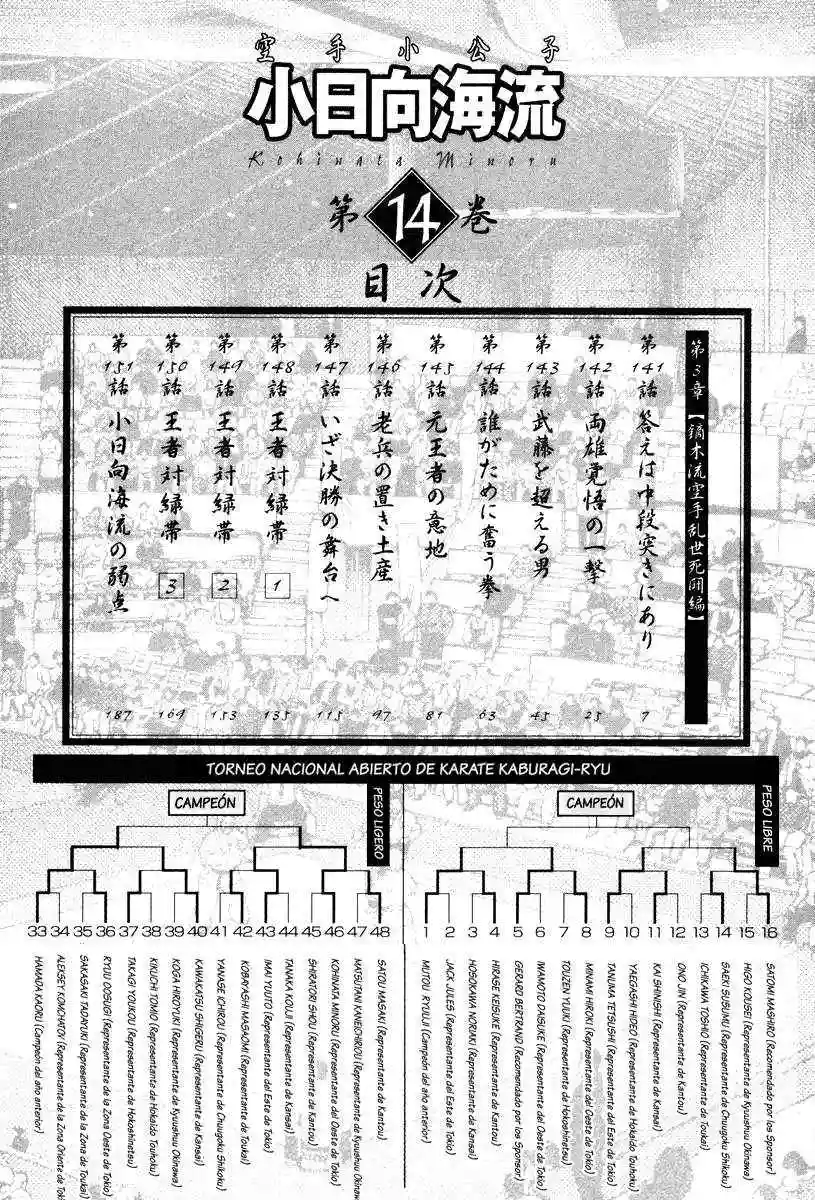 空手小公子
小日向海流
Kohinata Minoru
第14巻
目次
第3章【鏑木流空手乱世死闘編】
第141話 答えは中段突きにあり 7
第142話 両雄覚悟の一撃 25
第143話 武藤を超える男 45
第144話 誰がために奮う拳 63
第145話 元王者の意地 81
第146話 老兵の置き土産 97
第147話 いざ決勝の舞台へ 115
第148話 王者対緑帯 1 135
第149話 王者対緑帯 2 153
第150話 王者対緑帯 3 169
第151話 小日向海流の弱点 187
TORNEO NACIONAL ABIERTO DE KARATE KABURAGI-RYU
PESO LIGERO
CAMPEÓN
33 34 35 36 37 38 39 40 41 42 43 44 45 46 47 48
HAMADA KAORU (Campeón del año anterior)
ALEKSEY KONCHATOV (Representante de la Zona Oriente de Tok
SAKASAKI TADAYUKI (Representante de la Zona de Toukai)
RYUU OOSUGI (Representante de la Zona Oeste de Tokio)
TAKAGI YOUKOU (Representante de Hokoshinetsu)
KIKUCHI TOMIO (Representante de Hokaido Touhoku)
KOGA HIROYUKI (Representante de Kyuushuu Okinawa)
KAWAKATSU SHIGERU (Representante de Kansai)
YANASE ICHIROU (Representante de Chuugoku Shikoku)
KOBAYASHI MASAOMI (Representante de Toukai)
IMAI YUUTO (Representante del Este de Tokio)
TANAKA KOUJI (Representante de Kansai)
SHIRATORI SHOU (Representante de Kantou)
KOHINATA MINORU (Representante del Oeste de Tokio)
MATSUTANI KANEICHIROU (Representante de Kyuushuu Okinawa
SATOU MASAKI (Representante de Kantou)
PESO LIBRE
CAMPEÓN
1 2 3 4 5 6 7 8 9 10 11 12 13 14 15 16
MUTOU RYUUJI (Campeón del año anterior)
JACK JULES (Representante del Este de Tokio)
HOSOKAWA NORIAKI (Representante de Kansai)
HIRASE KEISUKE (Representante de Kantou)
GERARD BERTRAND (Recomendado por los Sponsor)
IWAMOTO DAISUKE (Representante del Oeste de Tokio)
TOUZEN YUUKI (Representante de Hokoshinetsu)
MINAMI HIROKI (Representante del Oeste de Tokio)
TANUMA TETSUSHI (Representante del Este de Tokio)
YAEGASHI HIDEO (Representante de Hokaido Touhoku)
KAI SHINISHI (Representante de Kansai)
ONO JIN (Representante de Kantou)
ICHIKAWA TOSHIO (Representante de Toukai)
SAEKI SUSUMU (Representante de Chuugoku Shikoku)
HIGO KOUSEI (Representante de Kyuushuu Okinawa)
SATOMI MASHIRO (Recomendado por los Sponsor)